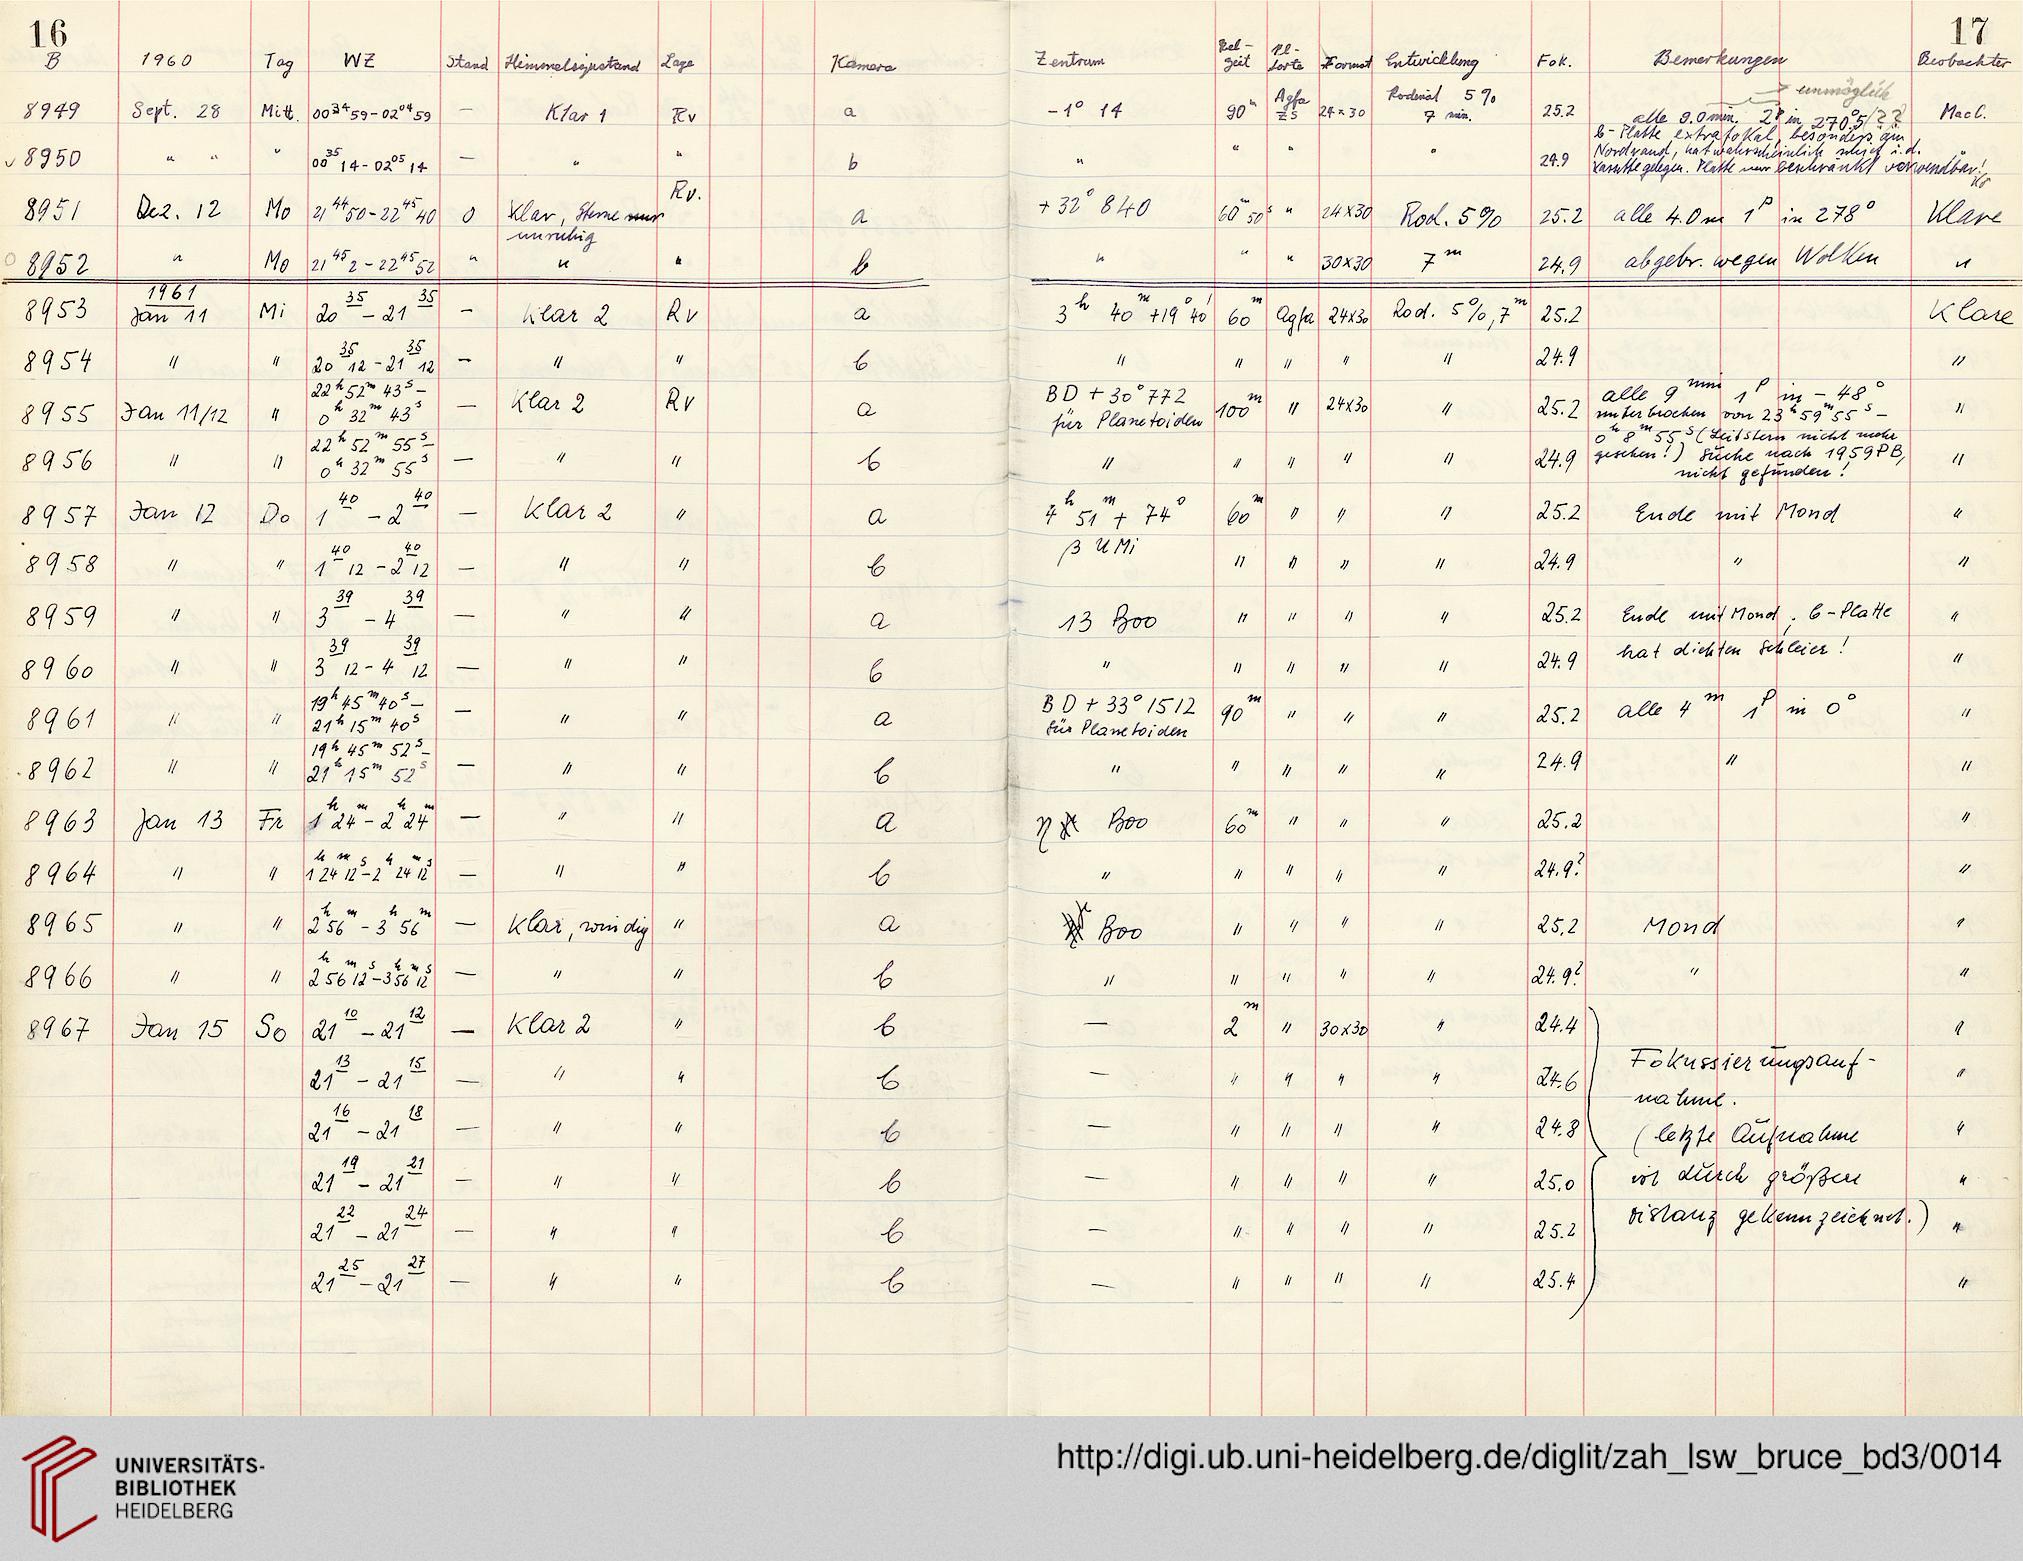 16 17
B 1960 Tag WZ Stand Himmelszustand Lage Kamera Zentrum Bel-zeit Pl-sorte Format Entwicklung Fok. Bemerkungen Beobachter
unmöglich
8949 Sept. 28 Mitt. 00 34 59 - 02 04 59 — Klar 1 Rv a -1° 14 90m Agfa ZS 24×30 Rodinal 5% 7 min. 25.2 alle 9.0 min. 2P in 270°5/?? Macl.
8950 " " " 00 35 14 - 02 05 14 — " " b " " " " 24.9 b-Platte extrafokal, besonders am
Nordrand, hat wahrscheinlich nicht i.d.
Kassette gelegen. Platte nur beschränkt verwendbar!
8951 Dez. 12 Mo 21 44 50 - 22 45 40 0 Klar, Sterne unruhig Rv. a +32° 840 60m 50s " 24×30 Rod. 5% 25.2 alle 4.0m 1P in 278° Klare
8952 " Mo 21 45 2 - 22 45 52 " " " b " " " 30×30 7m 24.9 abgebr. wegen Wolken "
1961
8953 Jan 11 Mi 20 35 - 21 35 — Klar 2 Rv a 3h 40m +19° 40' 60m Agfa 24×30 Rod. 5%, 7m 25.2 Klare
8954 " " 20 35 12 - 21 35 12 — " " b " " " " " 24.9 "
8955 Jan 11/12 " 22h 52m 43s - 0h 32m 43s — Klar 2 Rv a BD +30° 772 für Planetoiden 100m " 24×30 " 25.2 alle 9 min 1P in -48° "
unterbrochen von 23h 59m 55s -
8956 " " 22h 52m 55s - 0h 32m 55s — " " b " " " " " 24.9 0h 8m 55s (Leitstern nicht mehr
gesehen!) Suche nach 1959PB, "
nicht gefunden!
8957 Jan 12 Do 1 40 - 2 40 — Klar 2 " a 4h 51m + 74° 60m " " " 25.2 Ende mit Mond "
8958 " " 1 40 12 - 2 40 12 — " " b β UMi " " " " 24.9 " "
8959 " " 3 39 - 4 39 — " " a 13 Boo " " " " 25.2 Ende mit Mond, b-Platte "
8960 " " 3 39 12 - 4 39 12 — " " b " " " " " 24.9 hat dichten Schleier! "
8961 " " 19h 45m 40s - 21h 15m 40s — " " a BD +33° 1512 für Planetoiden 90m " " " 25.2 alle 4m 1P in 0° "
8962 " " 19h 45m 52s - 21h 15m 52s — " " b " " " " " 24.9 " "
8963 Jan 13 Fr 1h 24m - 2h 24m — " " a η Boo 60m " " " 25.2 "
8964 " " 1h 24m 12s - 2h 24m 12s — " " b " " " " " 24.9? "
8965 " " 2h 56m - 3h 56m — Klar, windig " a Boo " " " " 25.2 Mond "
8966 " " 2h 56m 12s - 3h 56m 12s — " " b " " " " " 24.9? " "
8967 Jan 15 So 21 10 - 21 12 — Klar 2 " b — 2m " 30×30 " 24.4 "
21 13 - 21 15 — " " b — " " " " 24.6 Fokussierungsauf- "
nahme.
21 16 - 21 18 — " " b — " " " " 24.8 (letzte Aufnahme "
21 19 - 21 21 — " " b — " " " " 25.0 ist durch größere "
21 22 - 21 24 — " " b — " " " " 25.2 Distanz gekennzeichnet.) "
21 25 - 21 27 — " " b — " " " " 25.4 "
UNIVERSITÄTS-
BIBLIOTHEK
HEIDELBERG
http://digi.ub.uni-heidelberg.de/diglit/zah_lsw_bruce_bd3/0014